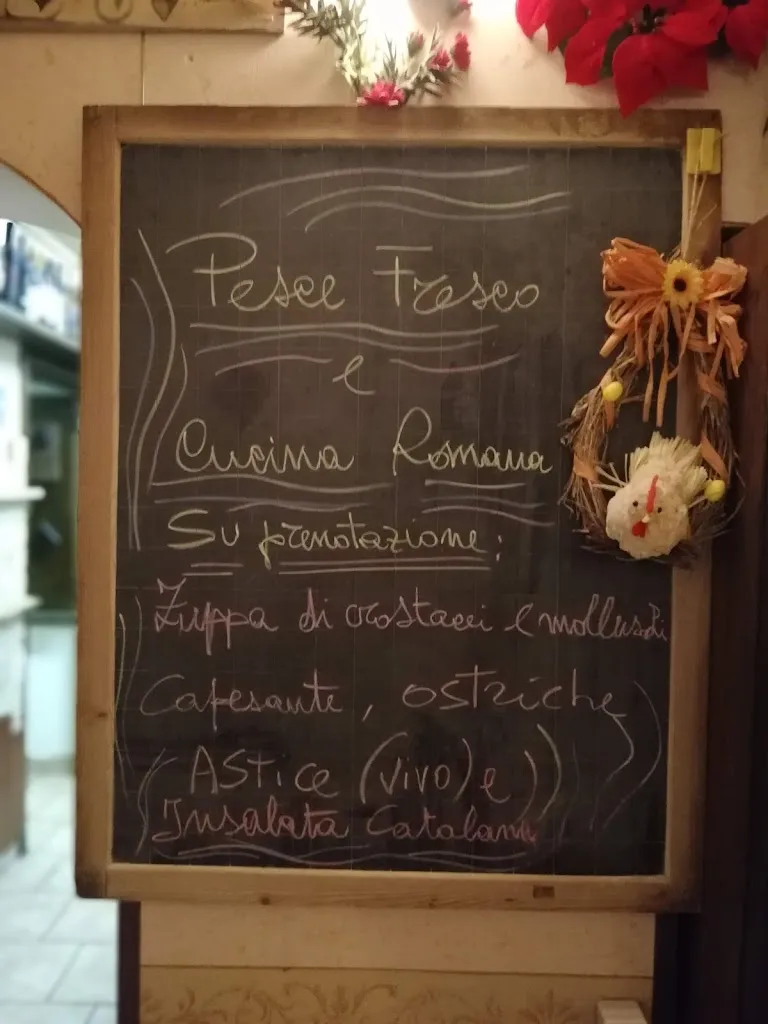 Pesce Fresco
e
Cucina Romana
Su prenotazione:
Zuppa di crostacei e molluschi
Capesante, ostriche
ASTICE (vivo) e
Insalata Catalana